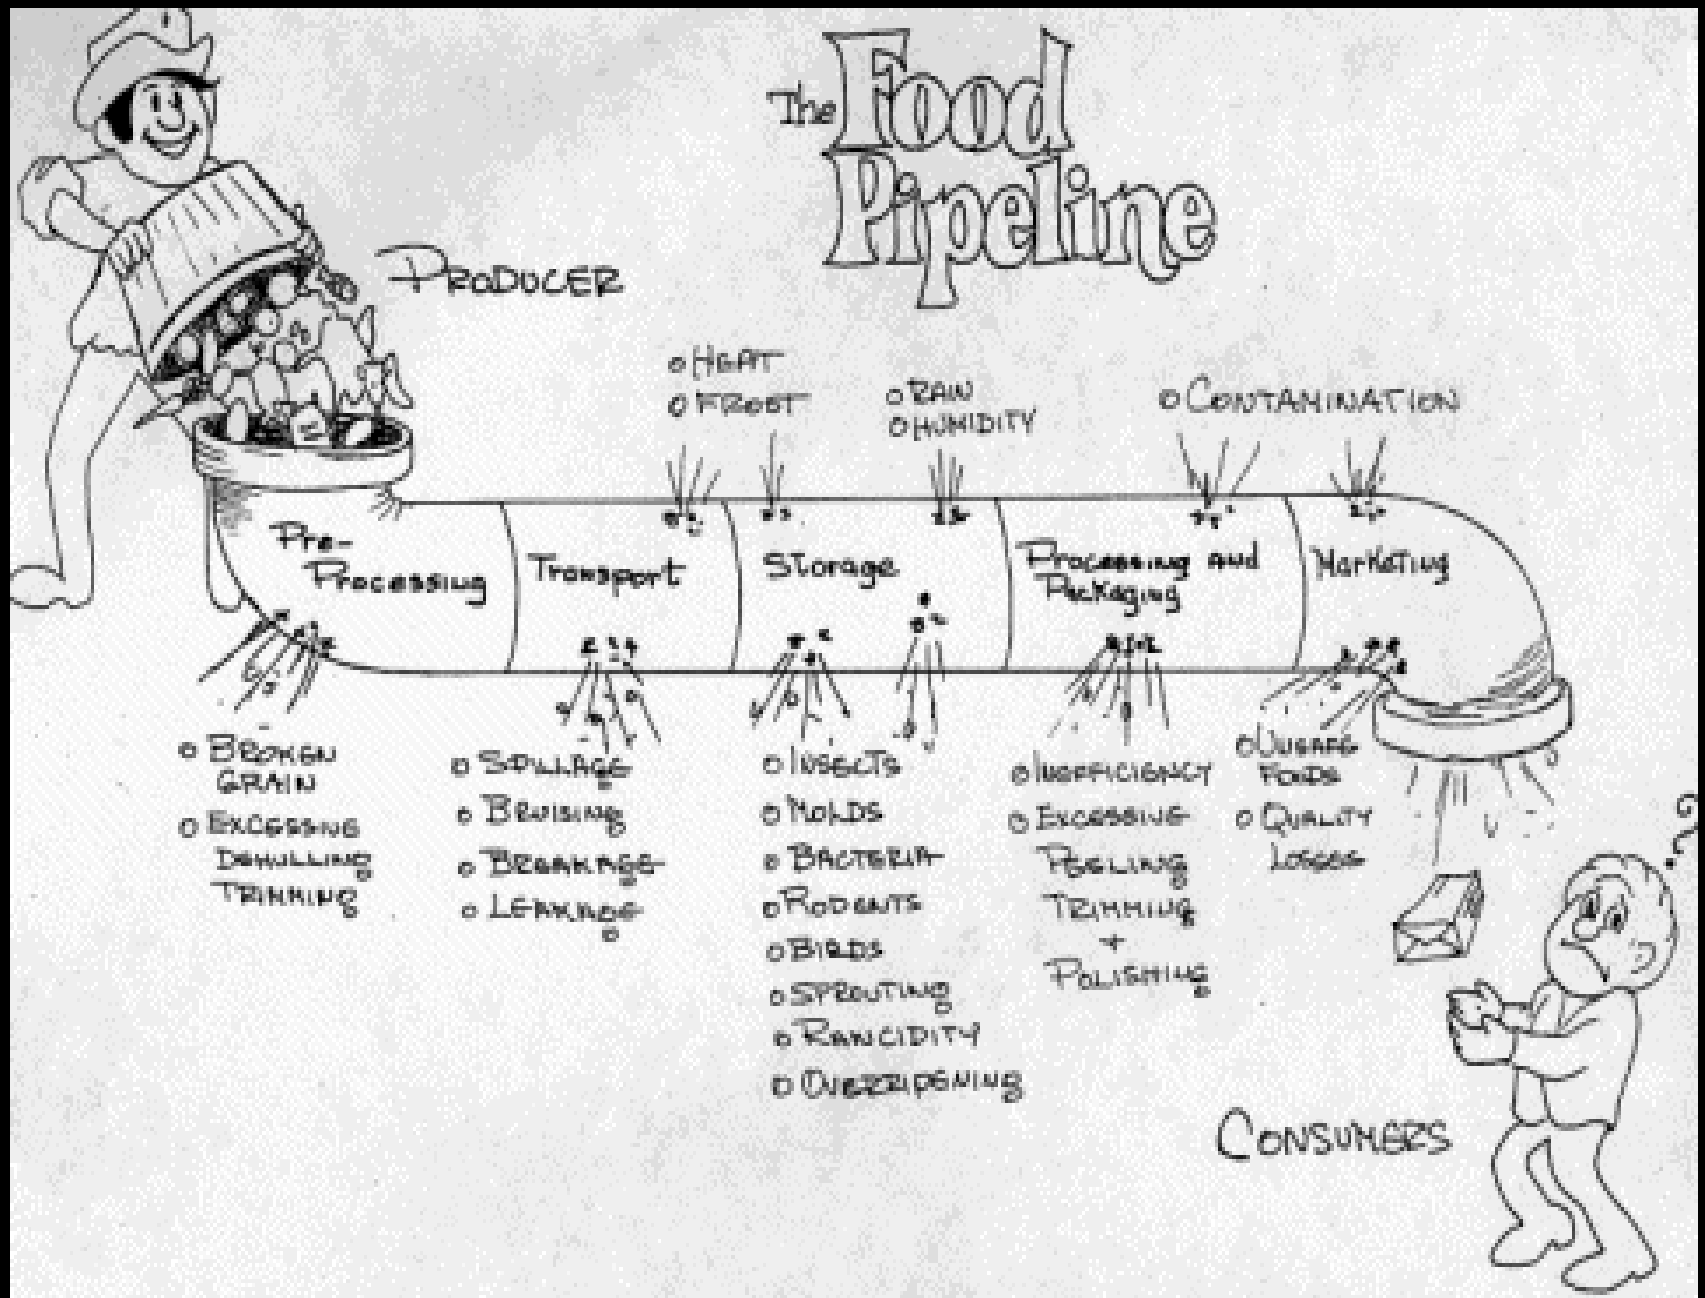 The Food
Pipeline
PRODUCER
o HEAT
o FROST
o RAIN
o HUMIDITY
o CONTAMINATION
Pre-
Processing
Transport
Storage
Processing and
Packaging
Marketing
o BROKEN
GRAIN
o EXCESSIVE
DEHULLING
TRIMMING
o SPILLAGE
o BRUISING
o BREAKAGE
o LEAKAGE
o INSECTS
o MOLDS
o BACTERIA
o RODENTS
o BIRDS
o SPROUTING
o RANCIDITY
o OVERRIPENING
o INEFFICIENCY
o EXCESSIVE
PEELING
TRIMMING
+
POLISHING
o UNSAFE
FOODS
o QUALITY
LOSSES
?
CONSUMERS